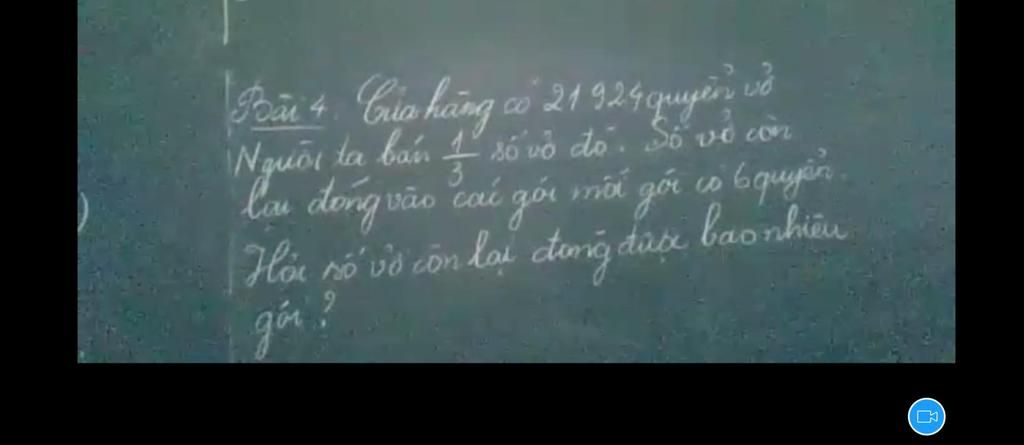 Bài 4. Cửa hàng có 21 924 quyển vở
Người ta bán 1/3 số vở đó. Số vở còn
lại đóng vào các gói mỗi gói có 6 quyển.
Hỏi số vở còn lại đóng được bao nhiêu
gói?
)